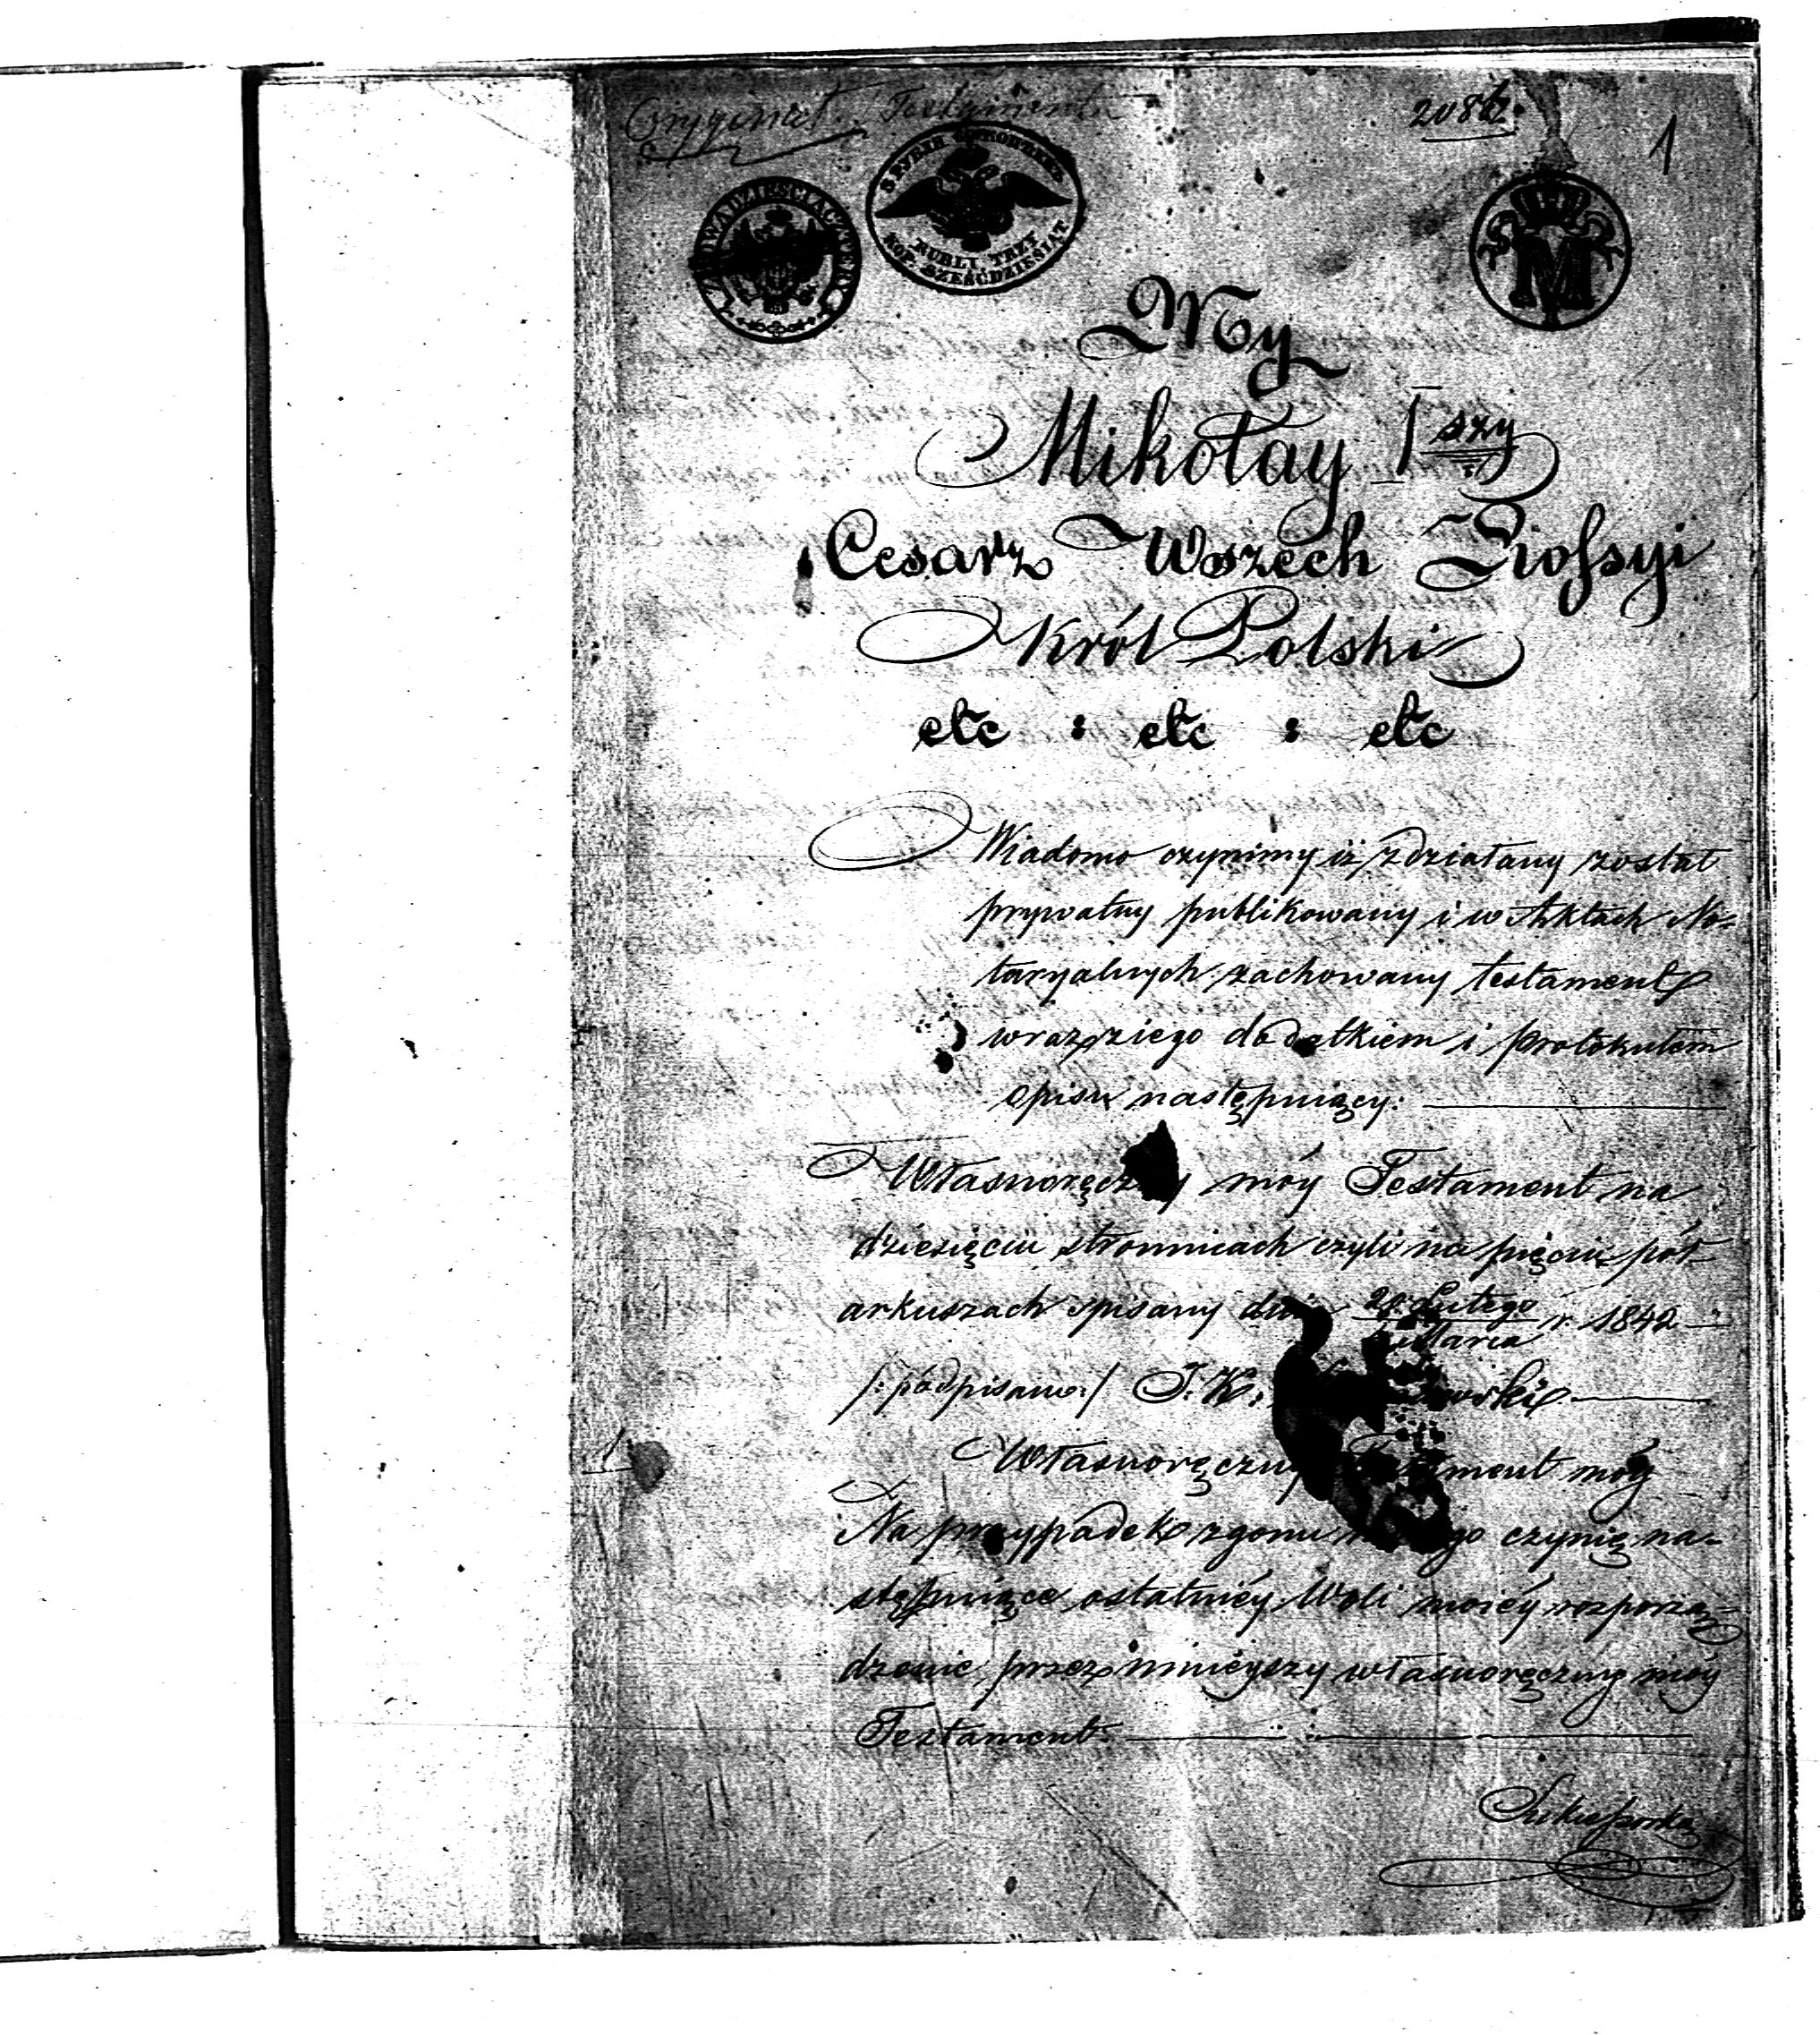 Oryginał Testamentu
1
ZŁ. DWADZIEŚCIA CZTERY
RUBLI TRZY
KOP: SZEŚĆDZIESIĄT
M
My
Mikołay I szy
Cesarz Wszech Rossyi
Król Polski
etc : etc : etc
Wiadomo czynimy iż zdziałany został
prywatny publikowany i w Aktach No-
taryalnych zachowany testament
wraz z iego dodatkiem i protokułem
opisu następuiący:
Własnoręczny móy Testament na
dziesięciu stronnicach czyli na pięciu pół-
arkuszach spisany dnia Lutego r. 1842
Marca
/: podpisano :/ J: K:
1
Własnoręczny Testament móy
Na przypadek zgonu mego czynię na-
stępuiące ostatniéy Woli moiéy rozporzą-
dzenie przez ninieyszy własnoręczny móy
Testament.